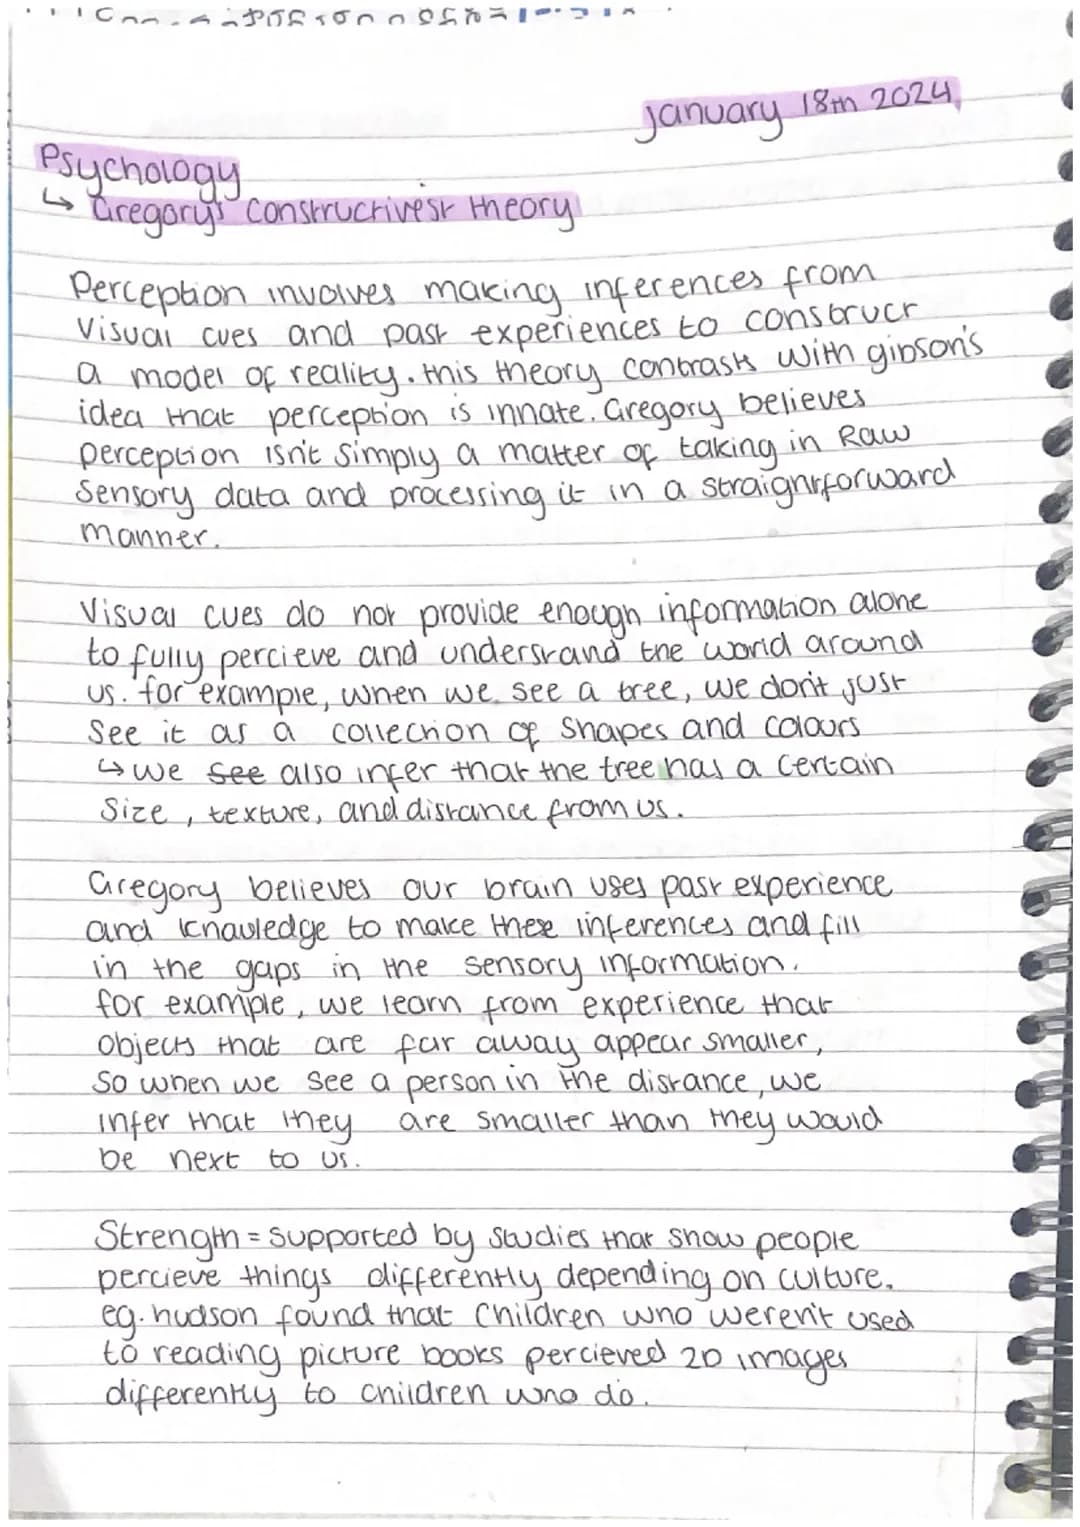 January 18th 2024
Psychology
↳ Gregory's constructivest theory
Perception involves making inferences from
visual cues and past experiences to construct
a model of reality. this theory contrasts with gibson's
idea that perception is innate. Gregory believes
perception isn't simply a matter of taking in Raw
sensory data and processing it in a straightforward
manner.
Visual cues do not provide enough information alone
to fully percieve and understand the world around
us. for example, when we see a tree, we don't just
see it as a collection of shapes and colours
↳ we see also infer that the tree has a certain
size, texture, and distance from us.
Gregory believes our brain uses past experience
and knowledge to make these inferences and fill
in the gaps in the sensory information.
for example, we learn from experience that
objects that are far away appear smaller,
so when we see a person in the distance, we
infer that they are smaller than they would
be next to us.
Strength = supported by studies that show people
percieve things differently depending on culture.
eg. hudson found that children who weren't used
to reading picture books percieved 2D images
differently to children who do.